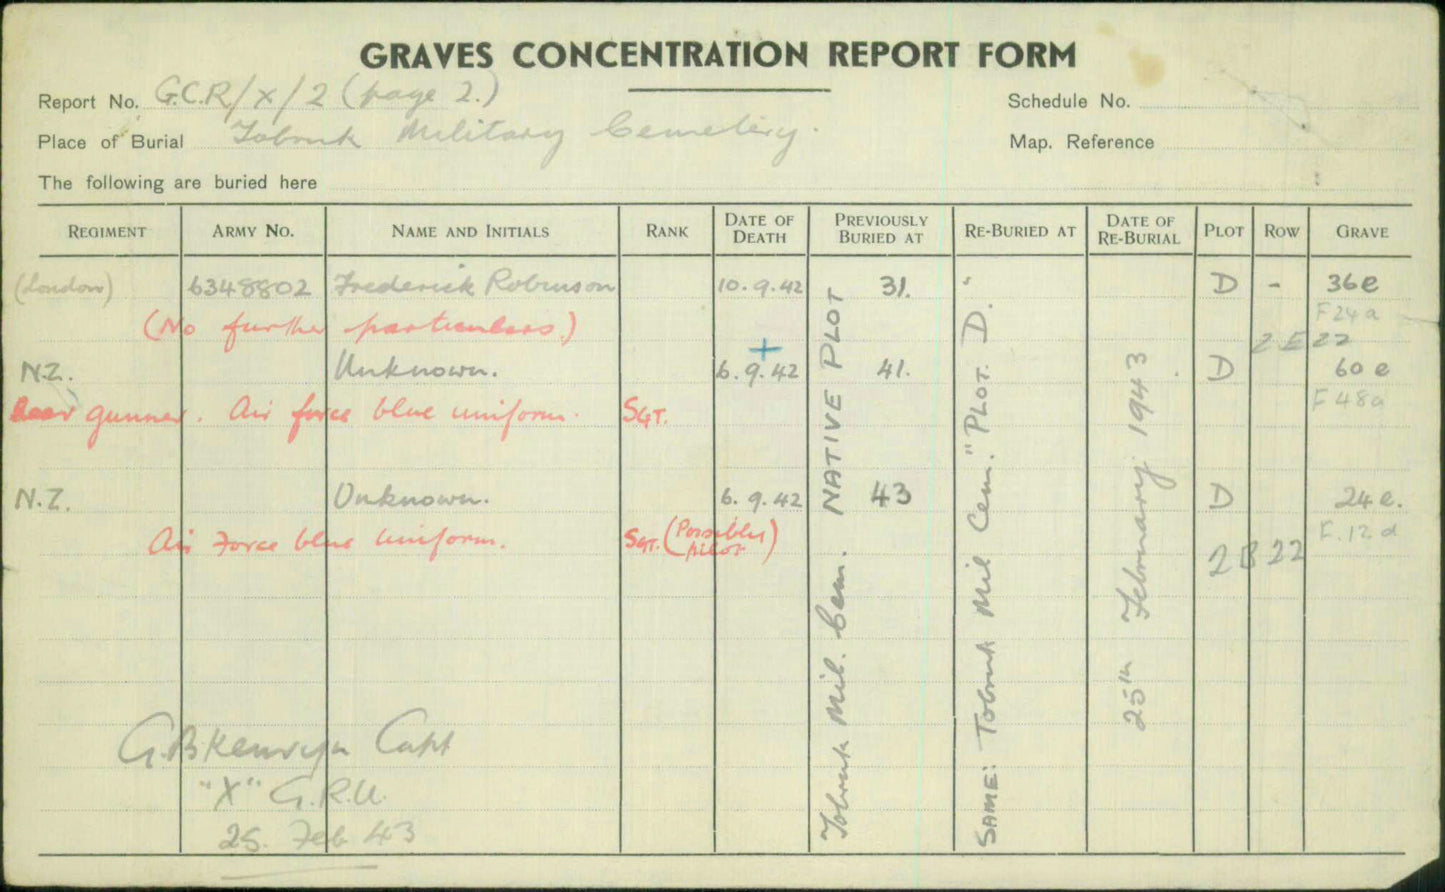 GRAVES CONCENTRATION REPORT FORM
Report No. G.C.R/X/2 (page 2.)
Schedule No.
Place of Burial Tobruk Military Cemetery.
Map. Reference
The following are buried here
REGIMENT ARMY No. NAME AND INITIALS RANK DATE OF DEATH PREVIOUSLY BURIED AT RE-BURIED AT DATE OF RE-BURIAL PLOT ROW GRAVE
(London) 6348802 Frederick Robinson 10.9.42 31. D - 36e
F24a
(No further particulars)
2 E 22
N.Z. Unknown. 6.9.42 41. D 60e
F48a
Rear gunner. Air force blue uniform. SGT.
N.Z. Unknown. 6.9.42 43 D 24e.
F.12.d
Air Force blue uniform. SGT. (Possibly pilot)
2 B 22
Tobruk Mil. Cem. NATIVE PLOT
SAME: Tobruk Mil Cem. "PLOT. D."
25th February 1943
G.B Kenwyn Capt
"X" G.R.U.
25. Feb 43